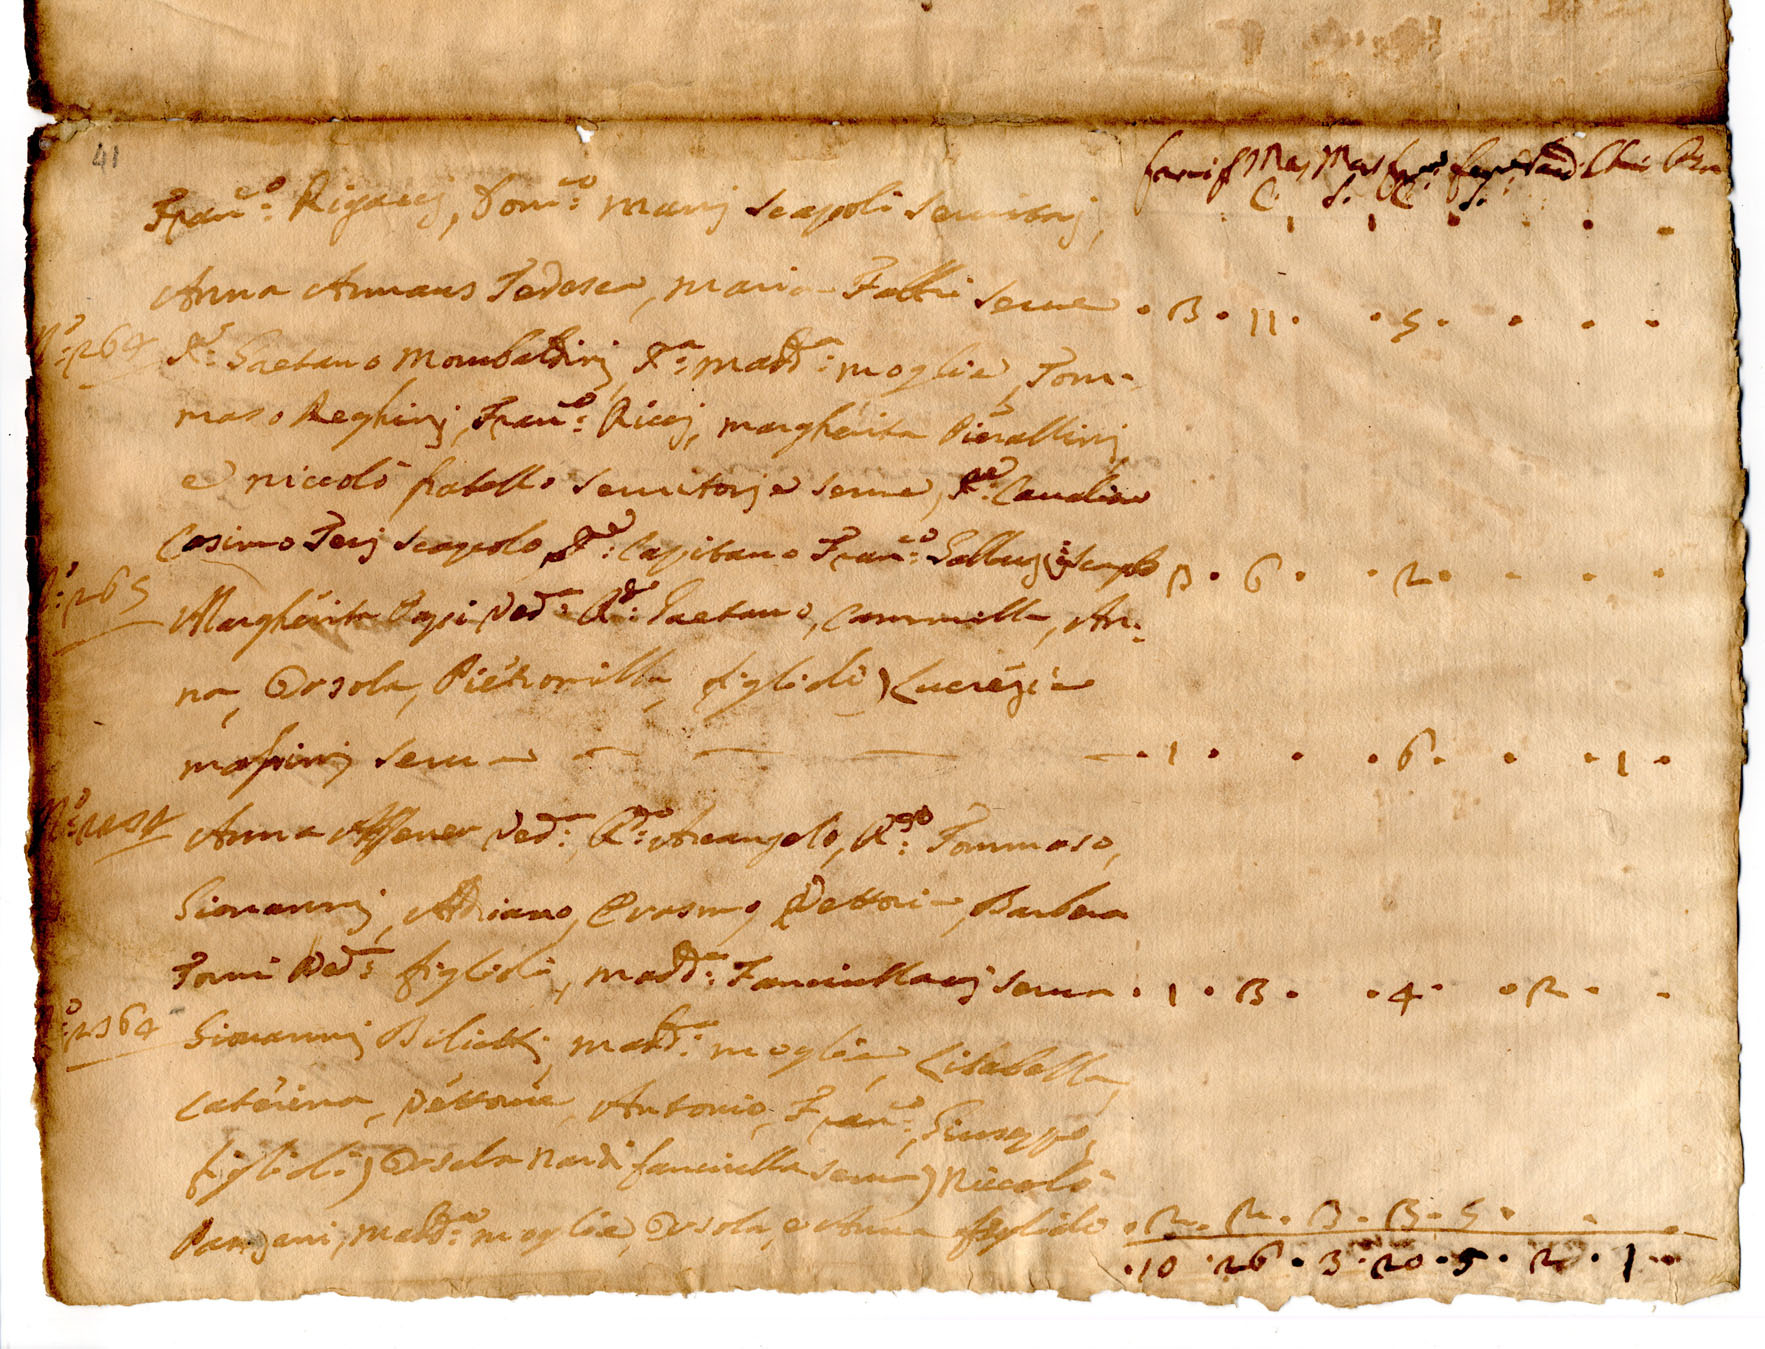 41
famigl Mas Mas fem fem Chie
C. S. C. S.
Fran.co Rigacci, Dom.co Marij scapoli servitorj,
Anna Armaus Tedesca, Maria Fallri serve · 3 · 11 · · 5 · · · ·
N.o 264 S.r Gaetano Mombaldinj, S.ra Madd.a moglie, Tom-
maso Reghinj, Fran.co Riccj, Margherita Pierallinj
e niccolò fratello servitorj e serve, S.re Cavalier
Cosimo Terj scapolo, S.r Capitano Fran.co Galluzzi scapolo 3 · 6 · · 2 · · · ·
265 Margherita Papi Ved.a Q.m Gaetano, Cammilla, An-
na, Orsola, Pietronilla, figlioli) Lucrezia
masinij serva · 1 · · · 6 · · · 1 ·
Anna Ved.a Q.m Arcangelo, Tommaso,
Giovannij, Adriano, Erasmo, Vettoria, Barbera
Torni Ved.a figlioli, Madd.a Fanciullaccj serva · 1 · 3 · · 4 · · 2 · ·
Giovannij Biliottj, Madd.a moglie, Lisabella,
Caterina, Vettoria, Antonio, Fran.co, Giuseppe,
figlioli) Orsola Nardi fanciulla serva) Niccolò
Panzani, Madd.a moglie, Orsola, e Anna figliole · 2 · 2 · 3 · 3 · 5 · · ·
· 10 · 26 · 3 · 20 · 5 · 2 · 1 ·